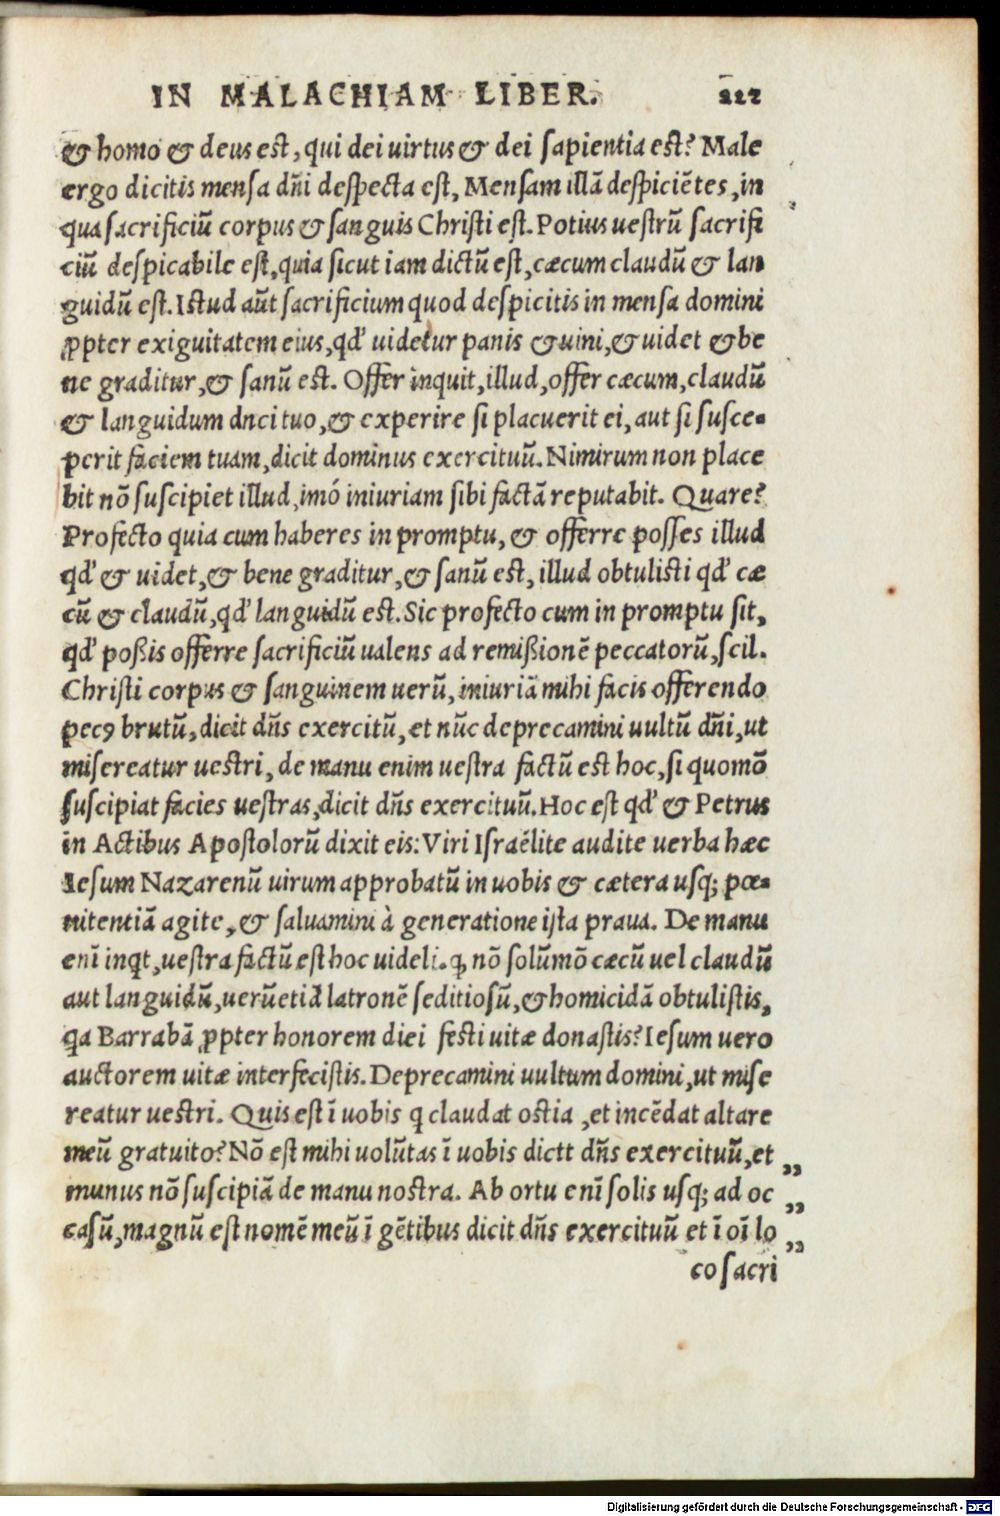 IN MALACHIAM LIBER. 212
& homo & deus est, qui dei uirtus & dei sapientia est? Male
ergo dicitis mensa dñi despecta est, Mensam illã despiciẽtes, in
qua sacrificiũ corpus & sanguis Christi est. Potius uestrũ sacrifi
ciũ despicabile est, quia sicut iam dictũ est, cæcum claudũ & lan
guidũ est. Istud aũt sacrificium quod despicitis in mensa domini
ꝓpter exiguitatem eius, qď uidetur panis & uini, & uidet & be
ne graditur, & sanũ est. Offer inquit, illud, offer cæcum, claudũ
& languidum duci tuo, & experire si placuerit ei, aut si susce-
perit faciem tuam, dicit dominus exercituũ. Nimirum non place
bit nõ suscipiet illud, imó iniuriam sibi factã reputabit. Quare?
Profecto quia cum haberes in promptu, & offerre posses illud
qď & uidet, & bene graditur, & sanũ est, illud obtulisti qď cæ
cũ & claudũ, qď languidũ est. Sic profecto cum in promptu sit,
qď poßis offerre sacrificiũ ualens ad remißionẽ peccatorũ, scil.
Christi corpus & sanguinem uerũ, iniuriã mihi facis offerendo
pecꝰ brutũ, dicit dñs exercitũ, et nũc deprecamini uultũ dñi, ut
misereatur uestri, de manu enim uestra factũ est hoc, si quomõ
suscipiat facies uestras, dicit dñs exercituũ. Hoc est qď & Petrus
in Actibus Apostolorũ dixit eis: Viri Israélite audite uerba hæc
Iesum Nazarenũ uirum approbatũ in uobis & cætera usq; pœ-
nitentiã agite, & saluamini à generatione ista praua. De manu
enĩ inqt, uestra factũ est hoc uideli. ꝙ nõ solũmõ cæcũ uel claudũ
aut languidũ, uerũetiã latronẽ seditiosũ, & homicidã obtulistis,
qa Barrabã ꝓpter honorem diei festi uitæ donastis? Iesum uero
auctorem uitæ interfecistis. Deprecamini uultum domini, ut mise
reatur uestri. Quis est ĩ uobis q claudat ostia, et incẽdat altare
meũ gratuito? Nõ est mihi uolũtas ĩ uobis dictt dñs exercituũ, et „
munus nõ suscipiã de manu nostra. Ab ortu enĩ solis usq; ad oc „
casũ, magnũ est nomẽ meũ ĩ gẽtibus dicit dñs exercituũ et ĩ oĩ lo „
co sacri
Digitalisierung gefördert durch die Deutsche Forschungsgemeinschaft - DFG